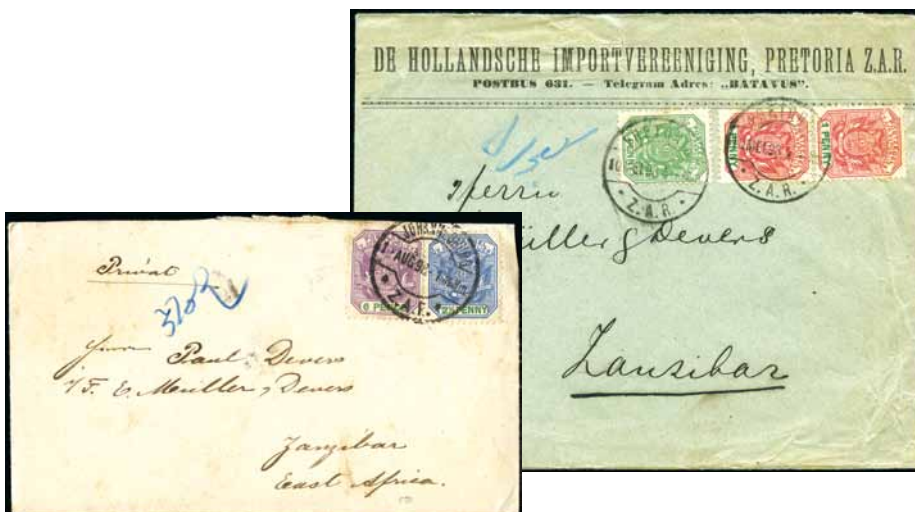 DE HOLLANDSCHE IMPORTVEREENIGING, PRETORIA Z.A.R.
POSTBUS 631. — Telegram Adres: „BATAVUS”.
1 PENNY
1 PENNY
Z.A.R.
Z.A.R.
Herrn
Müller & Devers
Zanzibar
Privat
AUG 98
Z.A.R.
6 PENCE
2½ PENNY
Herrn Paul Devers
E. Müller & Devers
Zanzibar
East Africa.